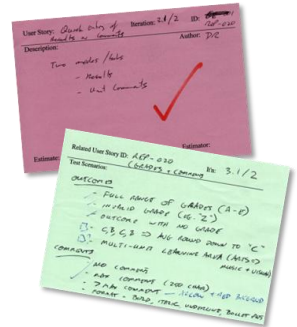 User Story: Quick entry of Iteration: 3.1/2 ID:
Results & Comments REP-020
Description: Author:
Two modes / tabs
- Results
- Unit Comments
Estimate: Estimator:
Related User Story ID: REP-020 It's: 3.1/2
Test Scenarios: (GRADES + COMMENTS)
OUTCOMES
- FULL RANGE OF GRADES (A-E)
- INVALID GRADE (EG. 'Z')
- OUTCOME WITH NO GRADE
C, B, C, B => AVG ROUND DOWN TO "C"
MULTI-UNIT LEARNING AREA (ARTS)
MUSIC + VISUAL
COMMENTS
- NO COMMENT
- MAX COMMENT (200 CHAR)
- > MAX COMMENT -
- FORMAT - BOLD, ITALIC, UNDERLINE, BULLET PTS